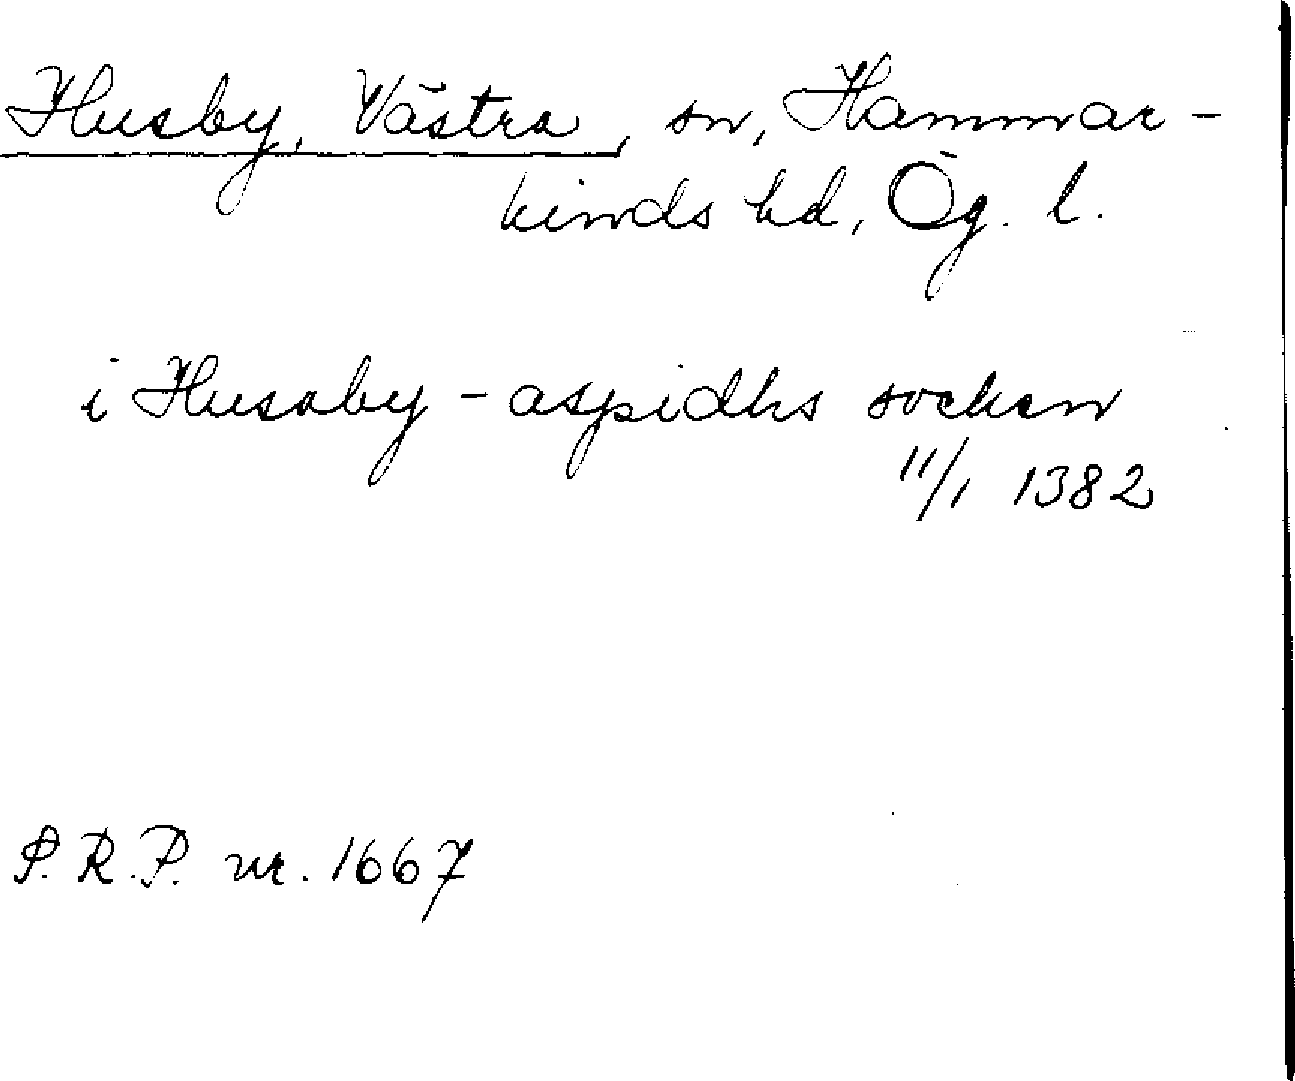 Husby, Västra, sn, Hammar-
kinds hd, Ög. l.
i Husaby - aspidhs socken
11/1 1382
P.R.P. nr. 1667